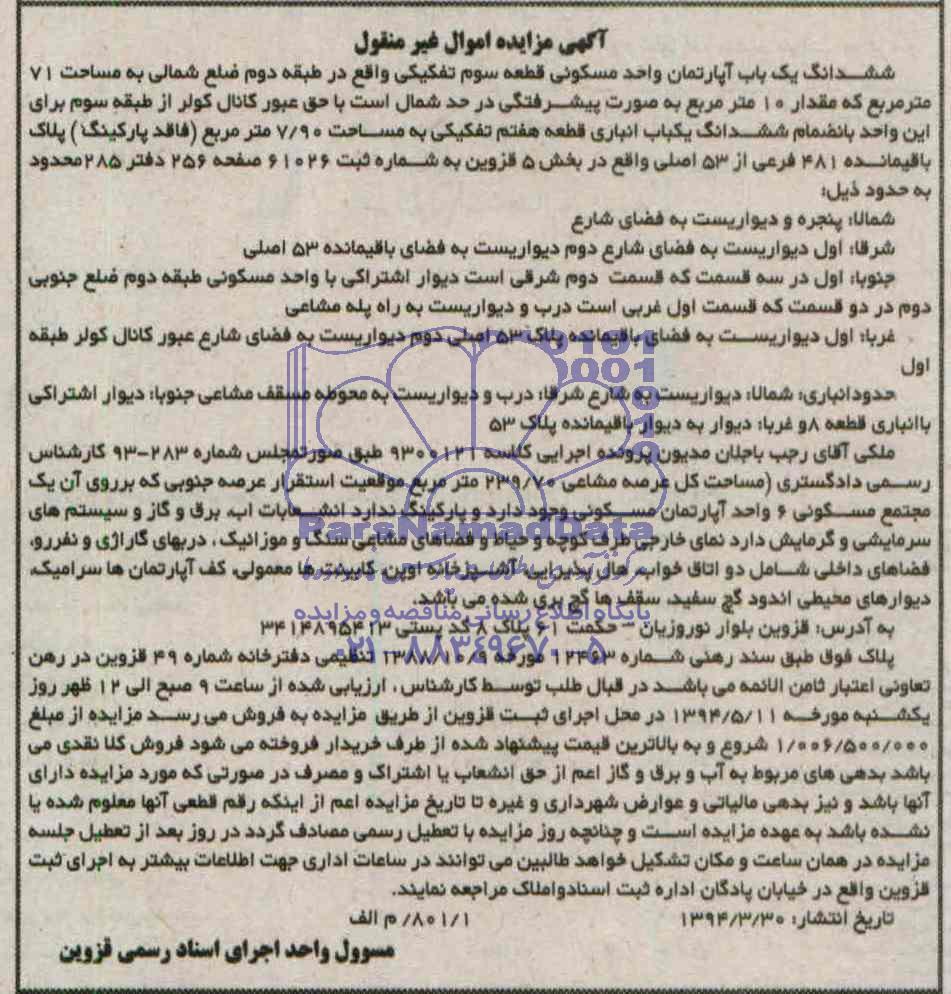 آگهی مزایده اموال غیر منقول
ششدانگ یک باب آپارتمان واحد مسکونی قطعه سوم تفکیکی واقع در طبقه دوم ضلع شمالی به مساحت ۷۱
مترمربع که مقدار ۱۰ متر مربع به صورت پیشرفتگی در حد شمال است با حق عبور کانال کولر از طبقه سوم برای
این واحد بانضمام ششدانگ یکباب انباری قطعه هفتم تفکیکی به مساحت ۷/۹۰ متر مربع (فاقد پارکینگ) پلاک
باقیمانده ۴۸۱ فرعی از ۵۳ اصلی واقع در بخش ۵ قزوین به شماره ثبت ۶۱۰۲۶ صفحه ۲۵۶ دفتر ۲۸۵ محدود
به حدود ذیل:
شمالا: پنجره و دیواریست به فضای شارع
شرقا: اول دیواریست به فضای شارع دوم دیواریست به فضای باقیمانده ۵۳ اصلی
جنوبا: اول در سه قسمت که قسمت دوم شرقی است دیوار اشتراکی با واحد مسکونی طبقه دوم ضلع جنوبی
دوم در دو قسمت که قسمت اول غربی است درب و دیواریست به راه پله مشاعی
غربا: اول دیواریست به فضای باقیمانده پلاک ۵۳ اصلی دوم دیواریست به فضای شارع عبور کانال کولر طبقه
اول
حدودانباری: شمالا: دیواریست به شارع شرقا: درب و دیواریست به محوطه مسقف مشاعی جنوبا: دیوار اشتراکی
باانباری قطعه ۸و غربا: دیوار به دیوار باقیمانده پلاک ۵۳
ملکی آقای رجب باجلان مدیون پرونده اجرایی کلاسه ۹۳۰۰۱۲۱ طبق صورتمجلس شماره ۲۸۳-۹۳ کارشناس
رسمی دادگستری (مساحت کل عرصه مشاعی ۲۳۹/۷۰ متر مربع موقعیت استقرار عرصه جنوبی که برروی آن یک
مجتمع مسکونی ۶ واحد آپارتمان مسکونی وجود دارد و پارکینگ ندارد انشعابات اب، برق و گاز و سیستم های
سرمایشی و گرمایش دارد نمای خارجی طرف کوچه و حیاط و فضاهای مشاعی سنگ و موزانیک، دربهای گاراژی و نفررو،
فضاهای داخلی شامل دو اتاق خواب، هال پذیرایی، آشپزخانه اوپن، کابینت ها معمولی، کف آپارتمان ها سرامیک،
دیوارهای محیطی اندود گچ سفید، سقف ها گچ بری شده می باشد.
به آدرس: قزوین بلوار نوروزیان – حکمت ۶۱ پلاک ۸ کد پستی ۳۴۱۴۸۹۵۴۲۳
پلاک فوق طبق سند رهنی شماره ۱۲۴۶۳ مورخه ۱۳۸۷/۱۰/۹ تنظیمی دفترخانه شماره ۴۹ قزوین در رهن
تعاونی اعتبار ثامن الائمه می باشد در قبال طلب توسط کارشناس، ارزیابی شده از ساعت ۹ صبح الی ۱۲ ظهر روز
یکشنبه مورخه ۱۳۹۴/۵/۱۱ در محل اجرای ثبت قزوین از طریق مزایده به فروش می رسد مزایده از مبلغ
۱/۰۰۶/۵۰۰/۰۰۰ شروع و به بالاترین قیمت پیشنهاد شده از طرف خریدار فروخته می شود فروش کلا نقدی می
باشد بدهی های مربوط به آب و برق و گاز اعم از حق انشعاب یا اشتراک و مصرف در صورتی که مورد مزایده دارای
آنها باشد و نیز بدهی مالیاتی و عوارض شهرداری و غیره تا تاریخ مزایده اعم از اینکه رقم قطعی آنها معلوم شده یا
نشده باشد به عهده مزایده است و چنانچه روز مزایده با تعطیل رسمی مصادف گردد در روز بعد از تعطیل جلسه
مزایده در همان ساعت و مکان تشکیل خواهد طالبین می توانند در ساعات اداری جهت اطلاعات بیشتر به اجرای ثبت
قزوین واقع در خیابان پادگان اداره ثبت اسنادواملاک مراجعه نمایند.
تاریخ انتشار: ۱۳۹۴/۳/۳۰ ۸۰۱/۱/ م الف
مسوول واحد اجرای اسناد رسمی قزوین
ParsNamadData
پایگاه اطلاع رسانی مناقصه و مزایده
۰۲۱-۸۸۳۴۹۶۷۰-۵